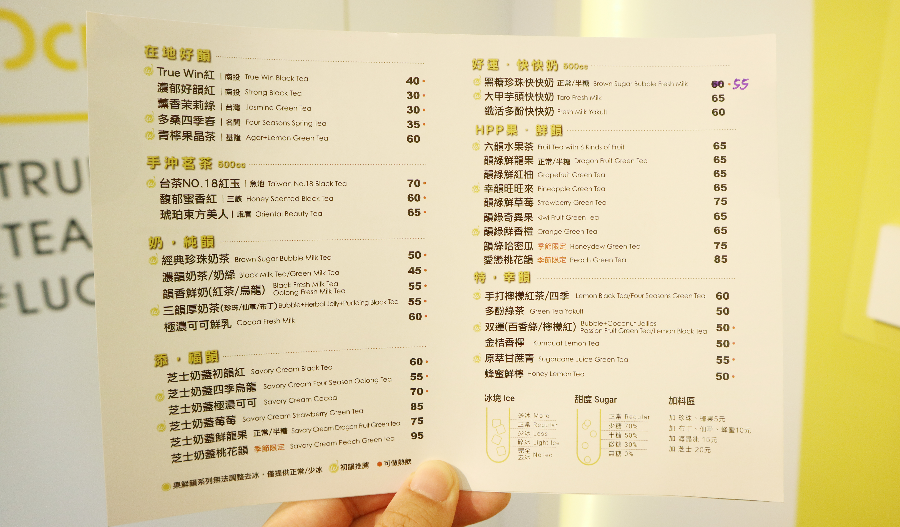 在地好韻
True Win紅 | 南投 True Win Black Tea 40
濃郁好韻紅 | 南投 Strong Black Tea 30
薰香茉莉綠 | 台灣 Jasmine Green Tea 30
多桑四季春 | 名間 Four Seasons Spring Tea 35
青檸果晶茶 | 基隆 Agar+Lemon Green Tea 60
手沖茗茶 500cc
台茶NO.18紅玉 | 魚池 Taiwan No.18 Black Tea 70
馥郁蜜香紅 | 三峽 Honey Scented Black Tea 60
琥珀東方美人 | Oriental Beauty Tea 65
奶・純韻
經典珍珠奶茶 Brown Sugar Bubble Milk Tea 50
濃韻奶茶/奶綠 Black Milk Tea/Green Milk Tea 45
韻香鮮奶(紅茶/烏龍) Black Fresh Milk Tea Oolong Fresh Milk Tea 55
三韻厚奶茶(珍珠/仙草/布丁) Bubble+Herbal Jelly+Pudding Black Tea 55
極濃可可鮮乳 Cocoa Fresh Milk 60
添・福韻
芝士奶蓋初韻紅 Savory Cream Black Tea 60
芝士奶蓋四季烏龍 Savory Cream Four Season Oolong Tea 55
芝士奶蓋極濃可可 Savory Cream Cocoa 70
芝士奶蓋莓莓 Savory Cream Strawberry Green Tea 85
芝士奶蓋鮮龍果 正常/半糖 Savory Cream Dragon Fruit Green Tea 75
芝士奶蓋桃花韻 季節限定 Savory Cream Peach Green Tea 95
果鮮韻系列無法調整去冰,僅提供正常/少冰 初韻推薦 可做熱飲
好運・快快奶 500cc
黑糖珍珠快快奶 正常/半糖 Brown Sugar Bubble Fresh Milk 60 55
大甲芋頭快快奶 Taro Fresh Milk 65
纖活多酚快快奶 Fresh Milk Yakult 60
HPP果・鮮韻
六韻水果茶 Fruit Tea with 6 Kinds of Fruit 65
韻綠鮮龍果 正常/半糖 Dragon Fruit Green Tea 65
韻綠鮮紅柚 Grapefruit Green Tea 65
幸韻旺旺來 Pineapple Green Tea 65
韻綠鮮草莓 Strawberry Green Tea 75
韻綠奇異果 Kiwi Fruit Green Tea 65
韻綠鮮香橙 Orange Green Tea 65
韻綠哈密瓜 季節限定 Honeydew Green Tea 75
愛戀桃花韻 季節限定 Peach Green Tea 85
特・幸韻
手打檸檬紅茶/四季 Lemon Black Tea/Four Seasons Green Tea 60
多酚綠茶 Green Tea Yakult 50
双運(百香綠/檸檬紅) Bubble+Coconut Jellies Passion Fruit Green Tea/Lemon Black Tea 50
金桔香檸 Kumquat Lemon Tea 50
原萃甘蔗菁 Sugarcane Juice Green Tea 55
蜂蜜鮮檸 Honey Lemon Tea 50
冰塊 Ice
多冰 More
正常 Regular
少冰 Less
碎冰 Light Ice
完全去冰 No Ice
甜度 Sugar
正常 Regular
少糖 70%
半糖 50%
微糖 30%
無糖 0%
加料區
加 珍珠、椰果5元
加 布丁、仙草、蜂蜜10元
加 15元
加 芝士 20元
TRU
TEA
#LUC